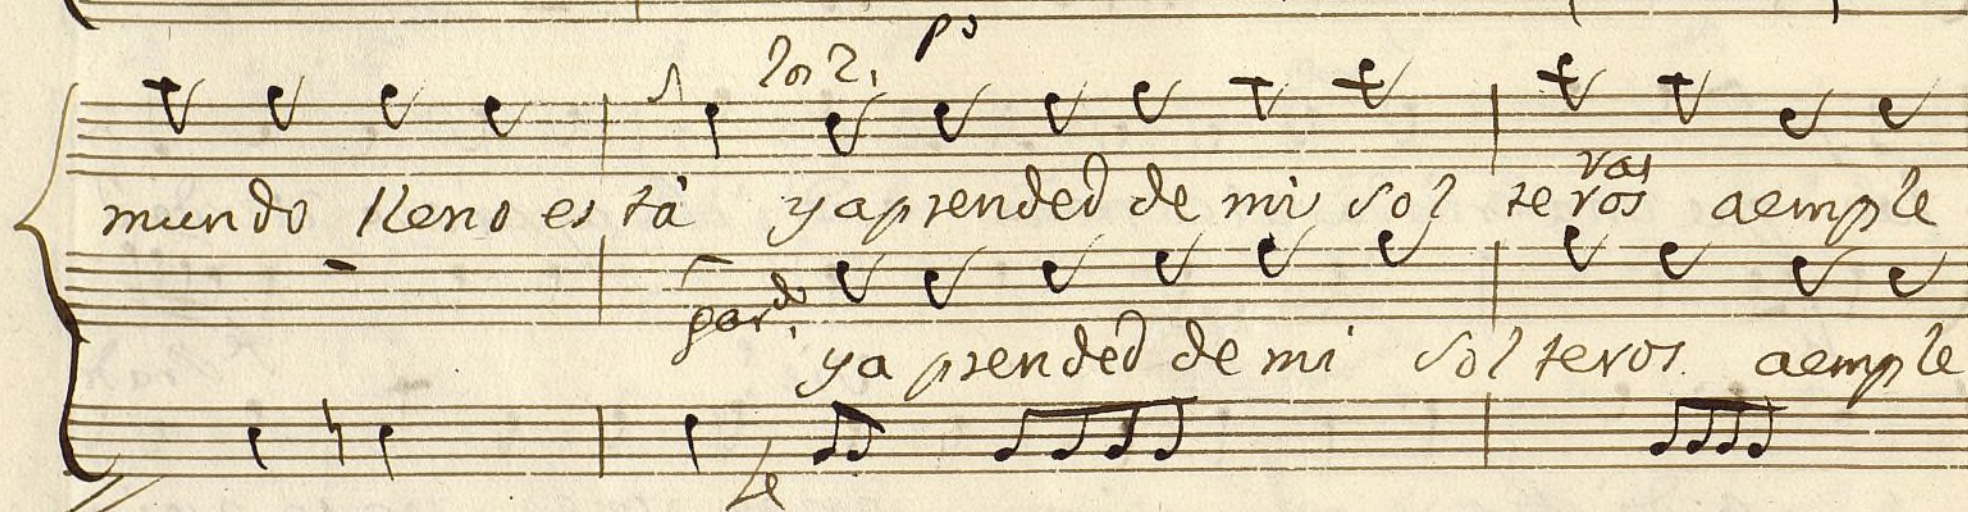 po
los 2.
mundo lleno está y aprended de mi sol teros aemple
ras
gard.
y aprended de mi sol teros. aemple